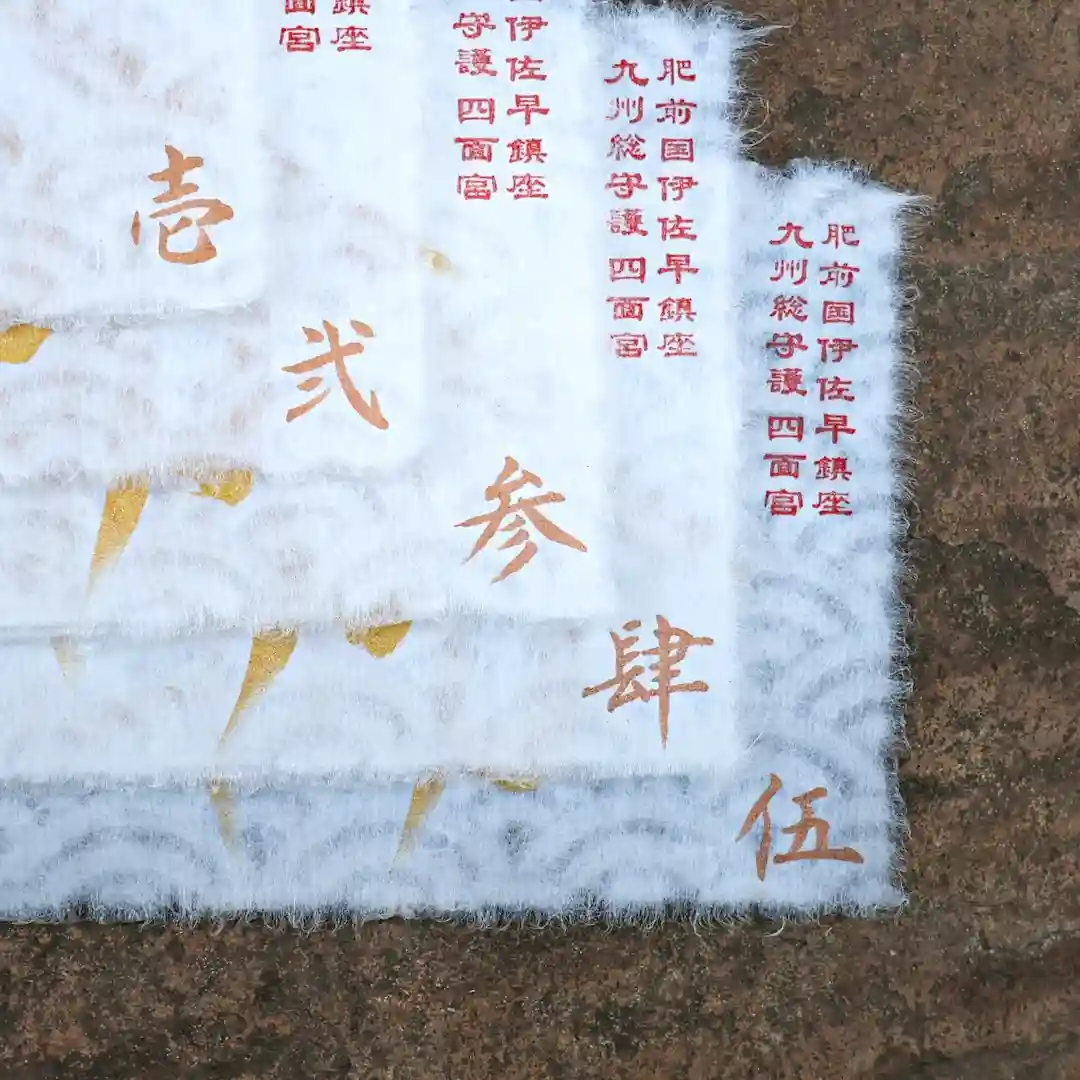 鎮座
面宮
壱
弐
国伊佐早鎮座
守護 四面宮
参
肥前国伊佐早鎮座
九州総守護 四面宮
肆
肥前国伊佐早鎮座
九州総守護 四面宮
伍